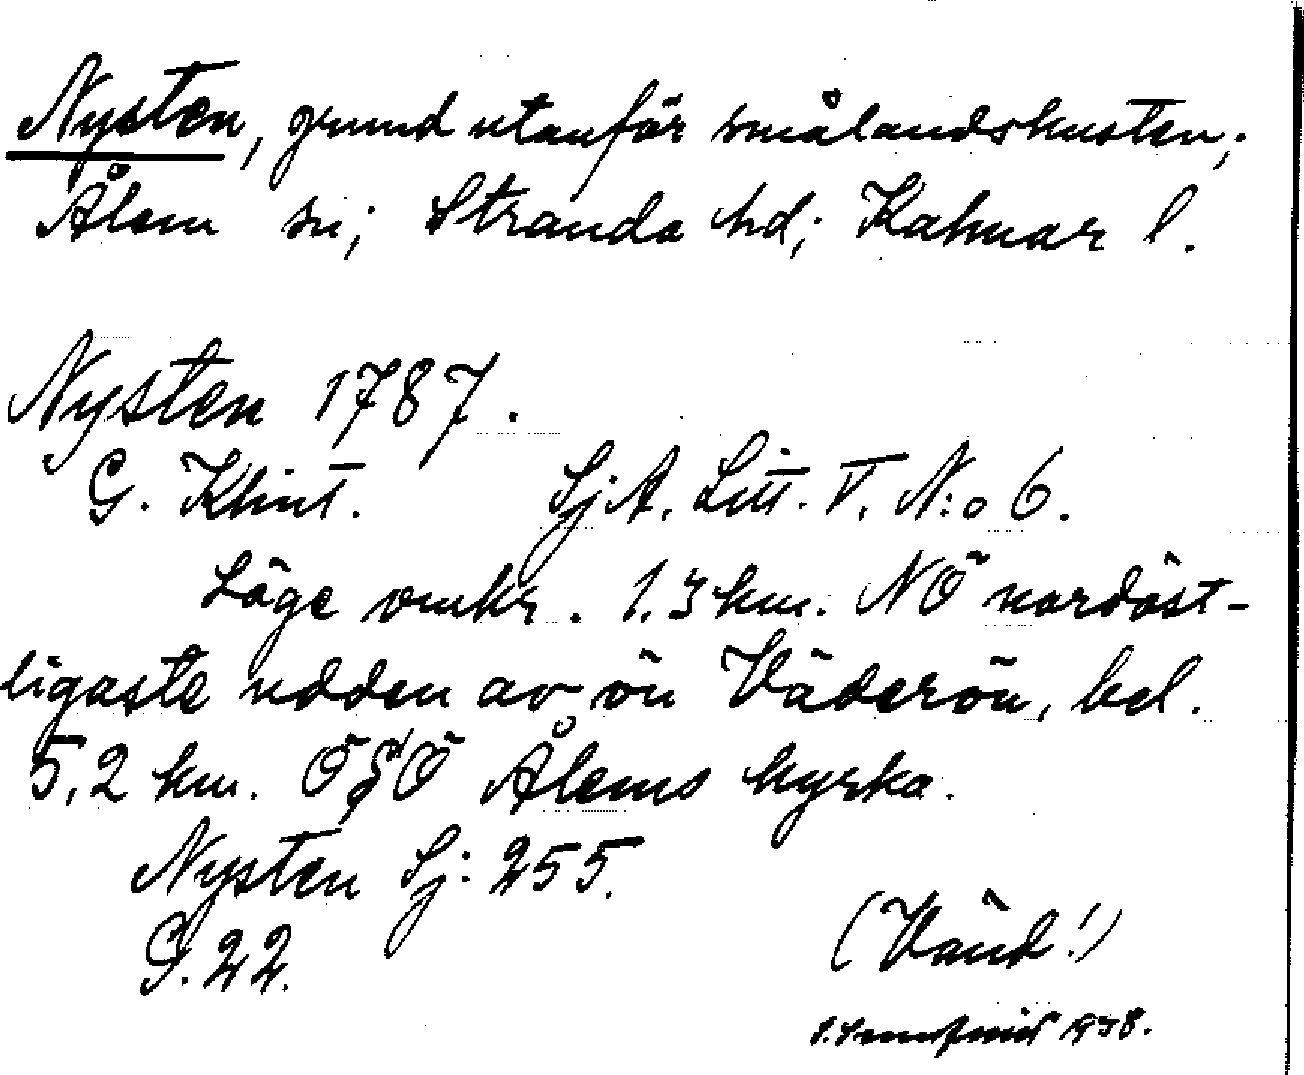 Nysten, grund utanför smålandskusten;
Ålem sn; Stranda hd; Kalmar l.
Nysten 1787.
G. Klint. Sj.A. Litt. V. N:o 6.
Läge omkr. 1.3 km. NÖ nordöst-
ligaste udden av ön Väderön, bel.
5,2 km. ÖSÖ Ålems kyrka.
Nysten Sj: 255.
G. 22.
(Vänd!)
1938.